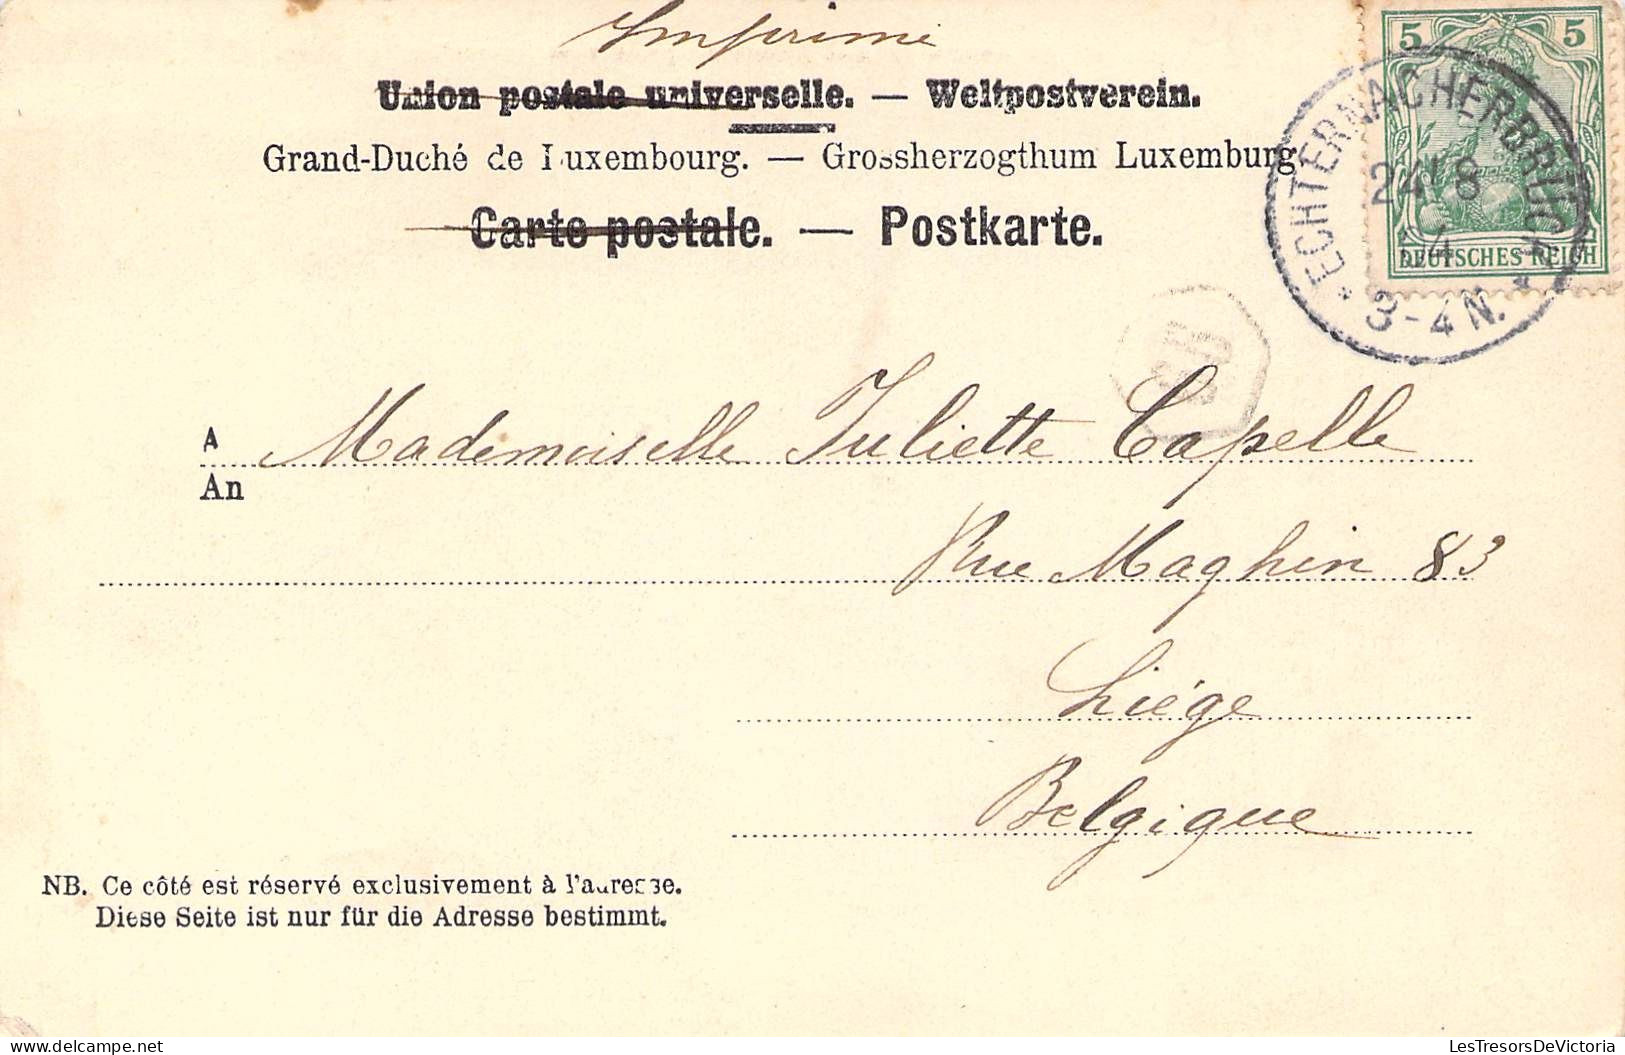 Imprimé
Union postale universelle. — Weltpostverein.
Grand-Duché de Luxembourg. — Grossherzogthum Luxemburg
Carte postale. — Postkarte.
5 5
DEUTSCHES REICH
* ECHTERNACHERBRÜCK *
24 8
04
3-4 N.
A Mademoiselle Juliette Capelle
An
Rue Maghin 83
Liége
Belgique
NB. Ce côté est réservé exclusivement à l'adresse.
Diese Seite ist nur für die Adresse bestimmt.
LesTresorsDeVictoria.com